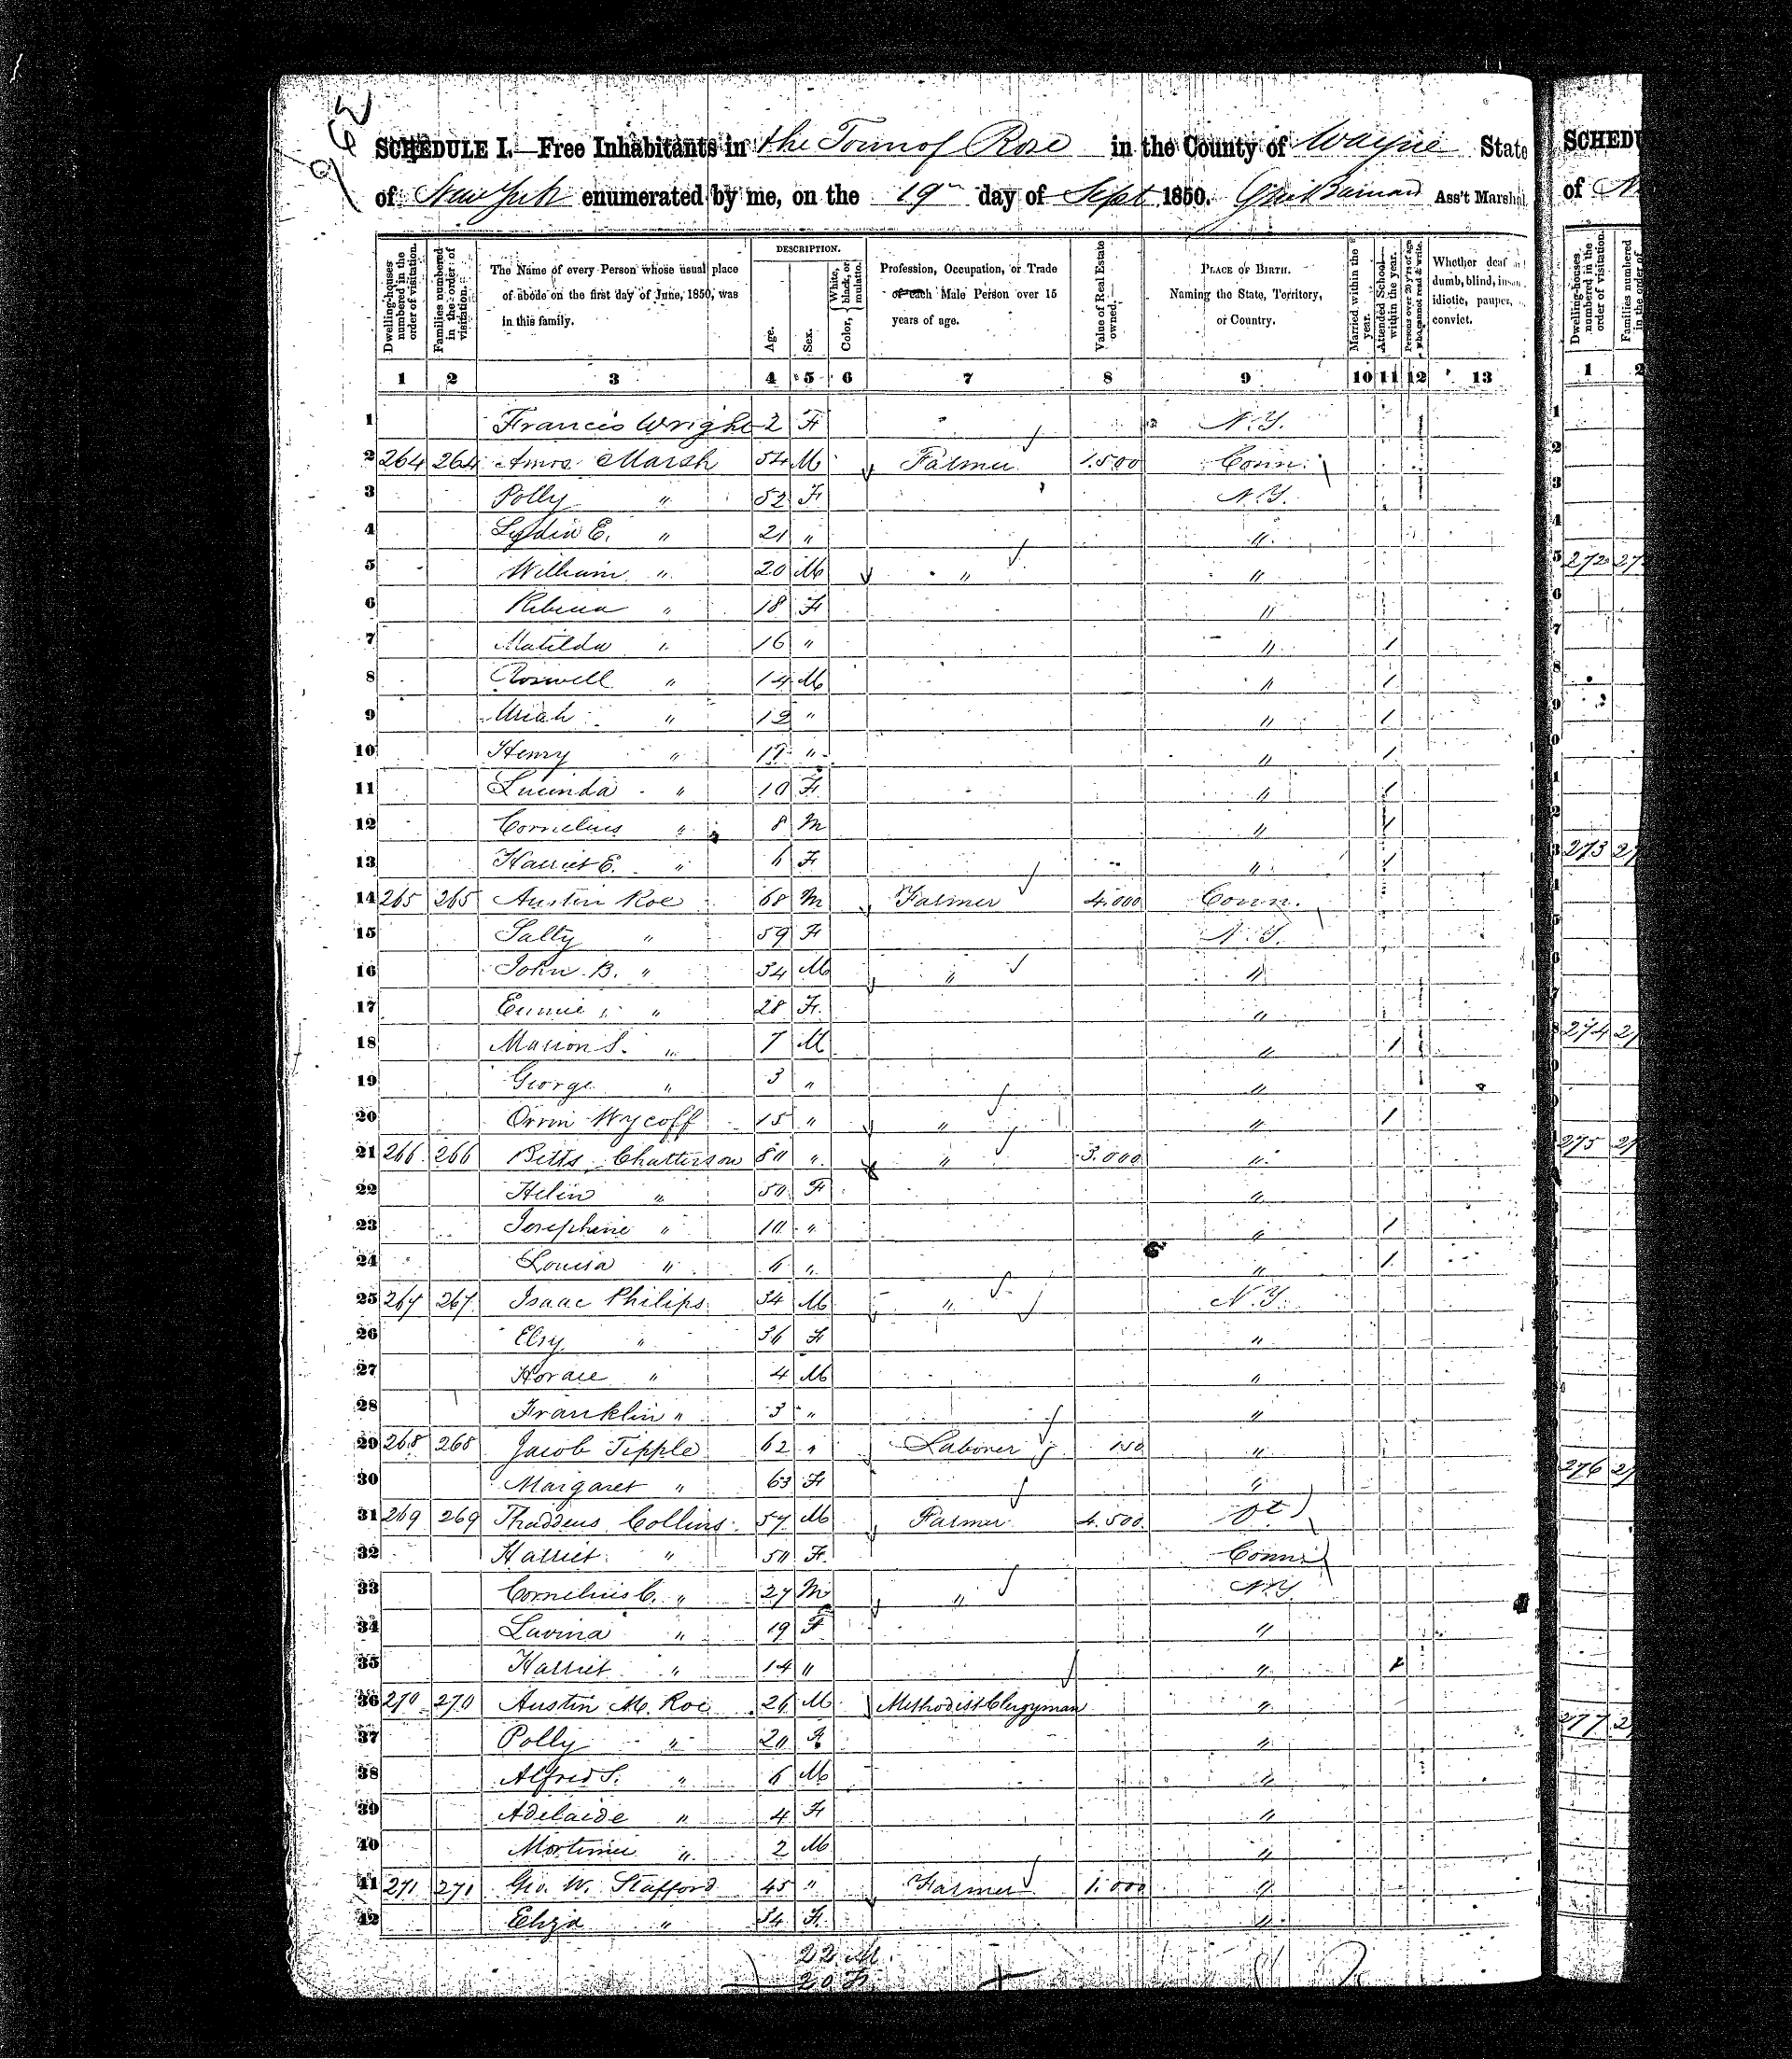 962
SCHEDULE I.—Free Inhabitants in the Town of Rose in the County of Wayne State
of New York enumerated by me, on the 19th day of Sept 1850. Ass't Marshal
DESCRIPTION.
Dwelling-houses numbered in the order of visitation. Families numbered in the order of visitation. The Name of every Person whose usual place of abode on the first day of June, 1850, was in this family. Age. Sex. Color, White, black, or mulatto. Profession, Occupation, or Trade of each Male Person over 15 years of age. Value of Real Estate owned. PLACE OF BIRTH. Naming the State, Territory, or Country. Married within the year. Attended School within the year. Persons over 20 y'rs of age who cannot read & write. Whether deaf and dumb, blind, insane, idiotic, pauper, convict.
1 2 3 4 5 6 7 8 9 10 11 12 13
1 Francis Wright 2 F N.Y.
2 264 264 Amos Marsh 54 M Farmer 1.500 Conn.
3 Polly " 52 F N.Y.
4 Lydia E. " 21 " "
5 William " 20 M " "
6 Rebecca " 18 F "
7 Matilda " 16 " " /
8 Roswell " 14 M " /
9 Uriah " 12 " " /
10 Henry " 12 " " /
11 Lucinda " 10 F " /
12 Cornelius " 8 M " /
13 Harriet E. " 6 F " /
14 265 265 Austin Roe 68 M Farmer 4.000 Conn.
15 Sally " 59 F N.Y.
16 John B. " 34 M " "
17 Eunice " 28 F "
18 Marion S. " 7 M " /
19 George " 3 " "
20 Orrin Wycoff 15 " " " /
21 266 266 Betts Chatterson 80 " " 3.000 "
22 Helen " 50 F "
23 Josephine " 10 " " /
24 Louisa " 6 " " /
25 267 267 Isaac Philips 34 M " N.Y.
26 Elsy " 36 F "
27 Horace " 4 M "
28 Franklin " 3 " "
29 268 268 Jacob Tipple 62 " Laborer 150 "
30 Margaret " 63 F "
31 269 269 Thaddeus Collins 57 M Farmer 4.500 Vt
32 Harriet " 50 F Conn
33 Cornelius C. " 27 M " N.Y.
34 Lavina " 19 F "
35 Harriet " 14 " " /
36 270 270 Austin M. Roe 26 M Methodist Clergyman "
37 Polly " 20 F "
38 Alfred S. " 6 M "
39 Adelaide " 4 F "
40 Mortimer " 2 M "
41 271 271 Geo. W. Stafford 45 " Farmer 1.000 "
42 Eliza " 34 F "
22 M
20 F
SCHEDU
of N
Dwelling-houses numbered in the order of visitation. Families numbered in the order of
1 2
272 27
273 27
274 27
275 27
276 27
277 2